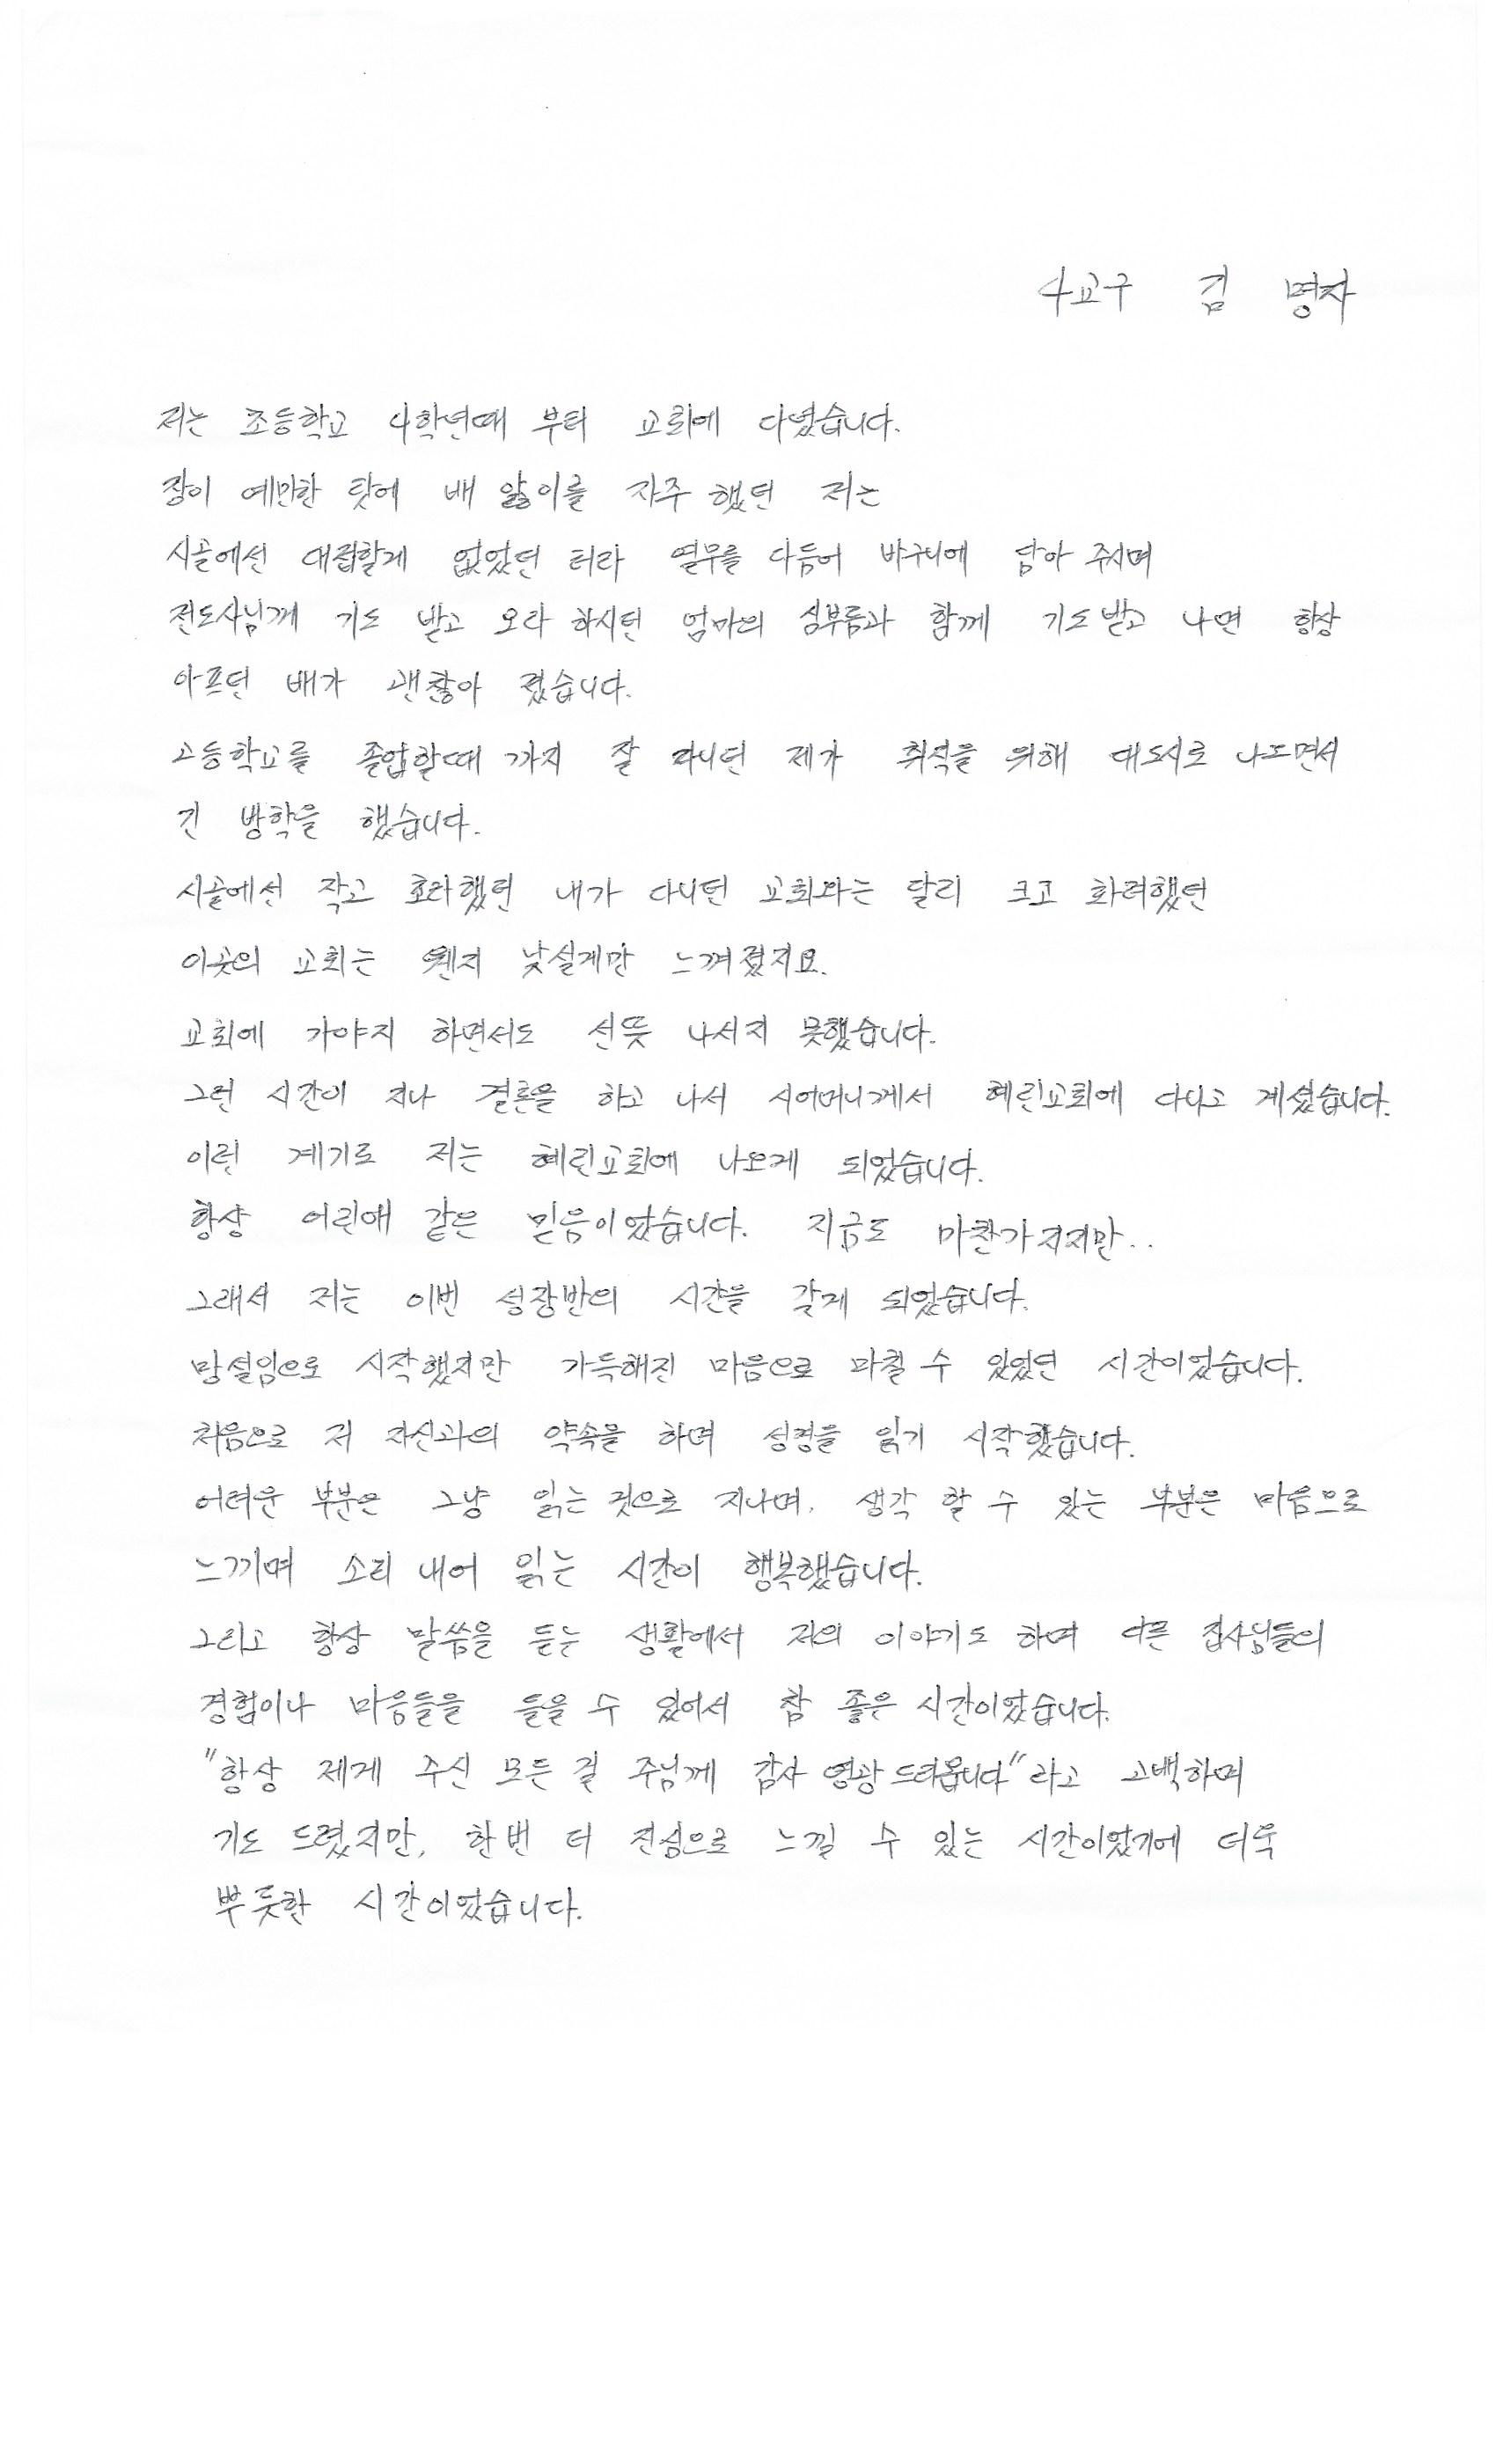 4교구 김 명자
저는 초등학교 4학년때 부터 교회에 다녔습니다.
장이 예민한 탓에 배 앓이를 자주 했던 저는
시골에선 대접할게 없었던 터라 열무를 다듬어 바구니에 담아 주시며
전도사님께 기도 받고 오라 하시던 엄마의 심부름과 함께 기도받고 나면 항상
아프던 배가 괜찮아 졌습니다.
고등학교를 졸업할때 까지 잘 다니던 제가 취직을 위해 대도시로 나오면서
긴 방학을 했습니다.
시골에선 작고 초라했던 내가 다니던 교회와는 달리 크고 화려했던
이곳의 교회는 웬지 낯설게만 느껴졌지요.
교회에 가야지 하면서도 선뜻 나서지 못했습니다.
그런 시간이 지나 결혼을 하고 나서 시어머니께서 혜린교회에 다니고 계셨습니다.
이런 계기로 저는 혜린교회에 나오게 되었습니다.
항상 어린애 같은 믿음이었습니다. 지금도 마찬가지지만..
그래서 저는 이번 성장반의 시간을 갖게 되었습니다.
망설임으로 시작했지만 가득해진 마음으로 마칠 수 있었던 시간이었습니다.
처음으로 저 자신과의 약속을 하며 성경을 읽기 시작했습니다.
어려운 부분은 그냥 읽는 것으로 지나며, 생각 할 수 있는 부분은 마음으로
느끼며 소리 내어 읽는 시간이 행복했습니다.
그리고 항상 말씀을 듣는 생활에서 저의 이야기도 하며 다른 집사님들의
경험이나 마음들을 들을 수 있어서 참 좋은 시간이었습니다.
"항상 제게 주신 모든 걸 주님께 감사 영광 드리옵니다"라고 고백하며
기도 드렸지만, 한번 더 진심으로 느낄 수 있는 시간이었기에 더욱
뿌듯한 시간이었습니다.